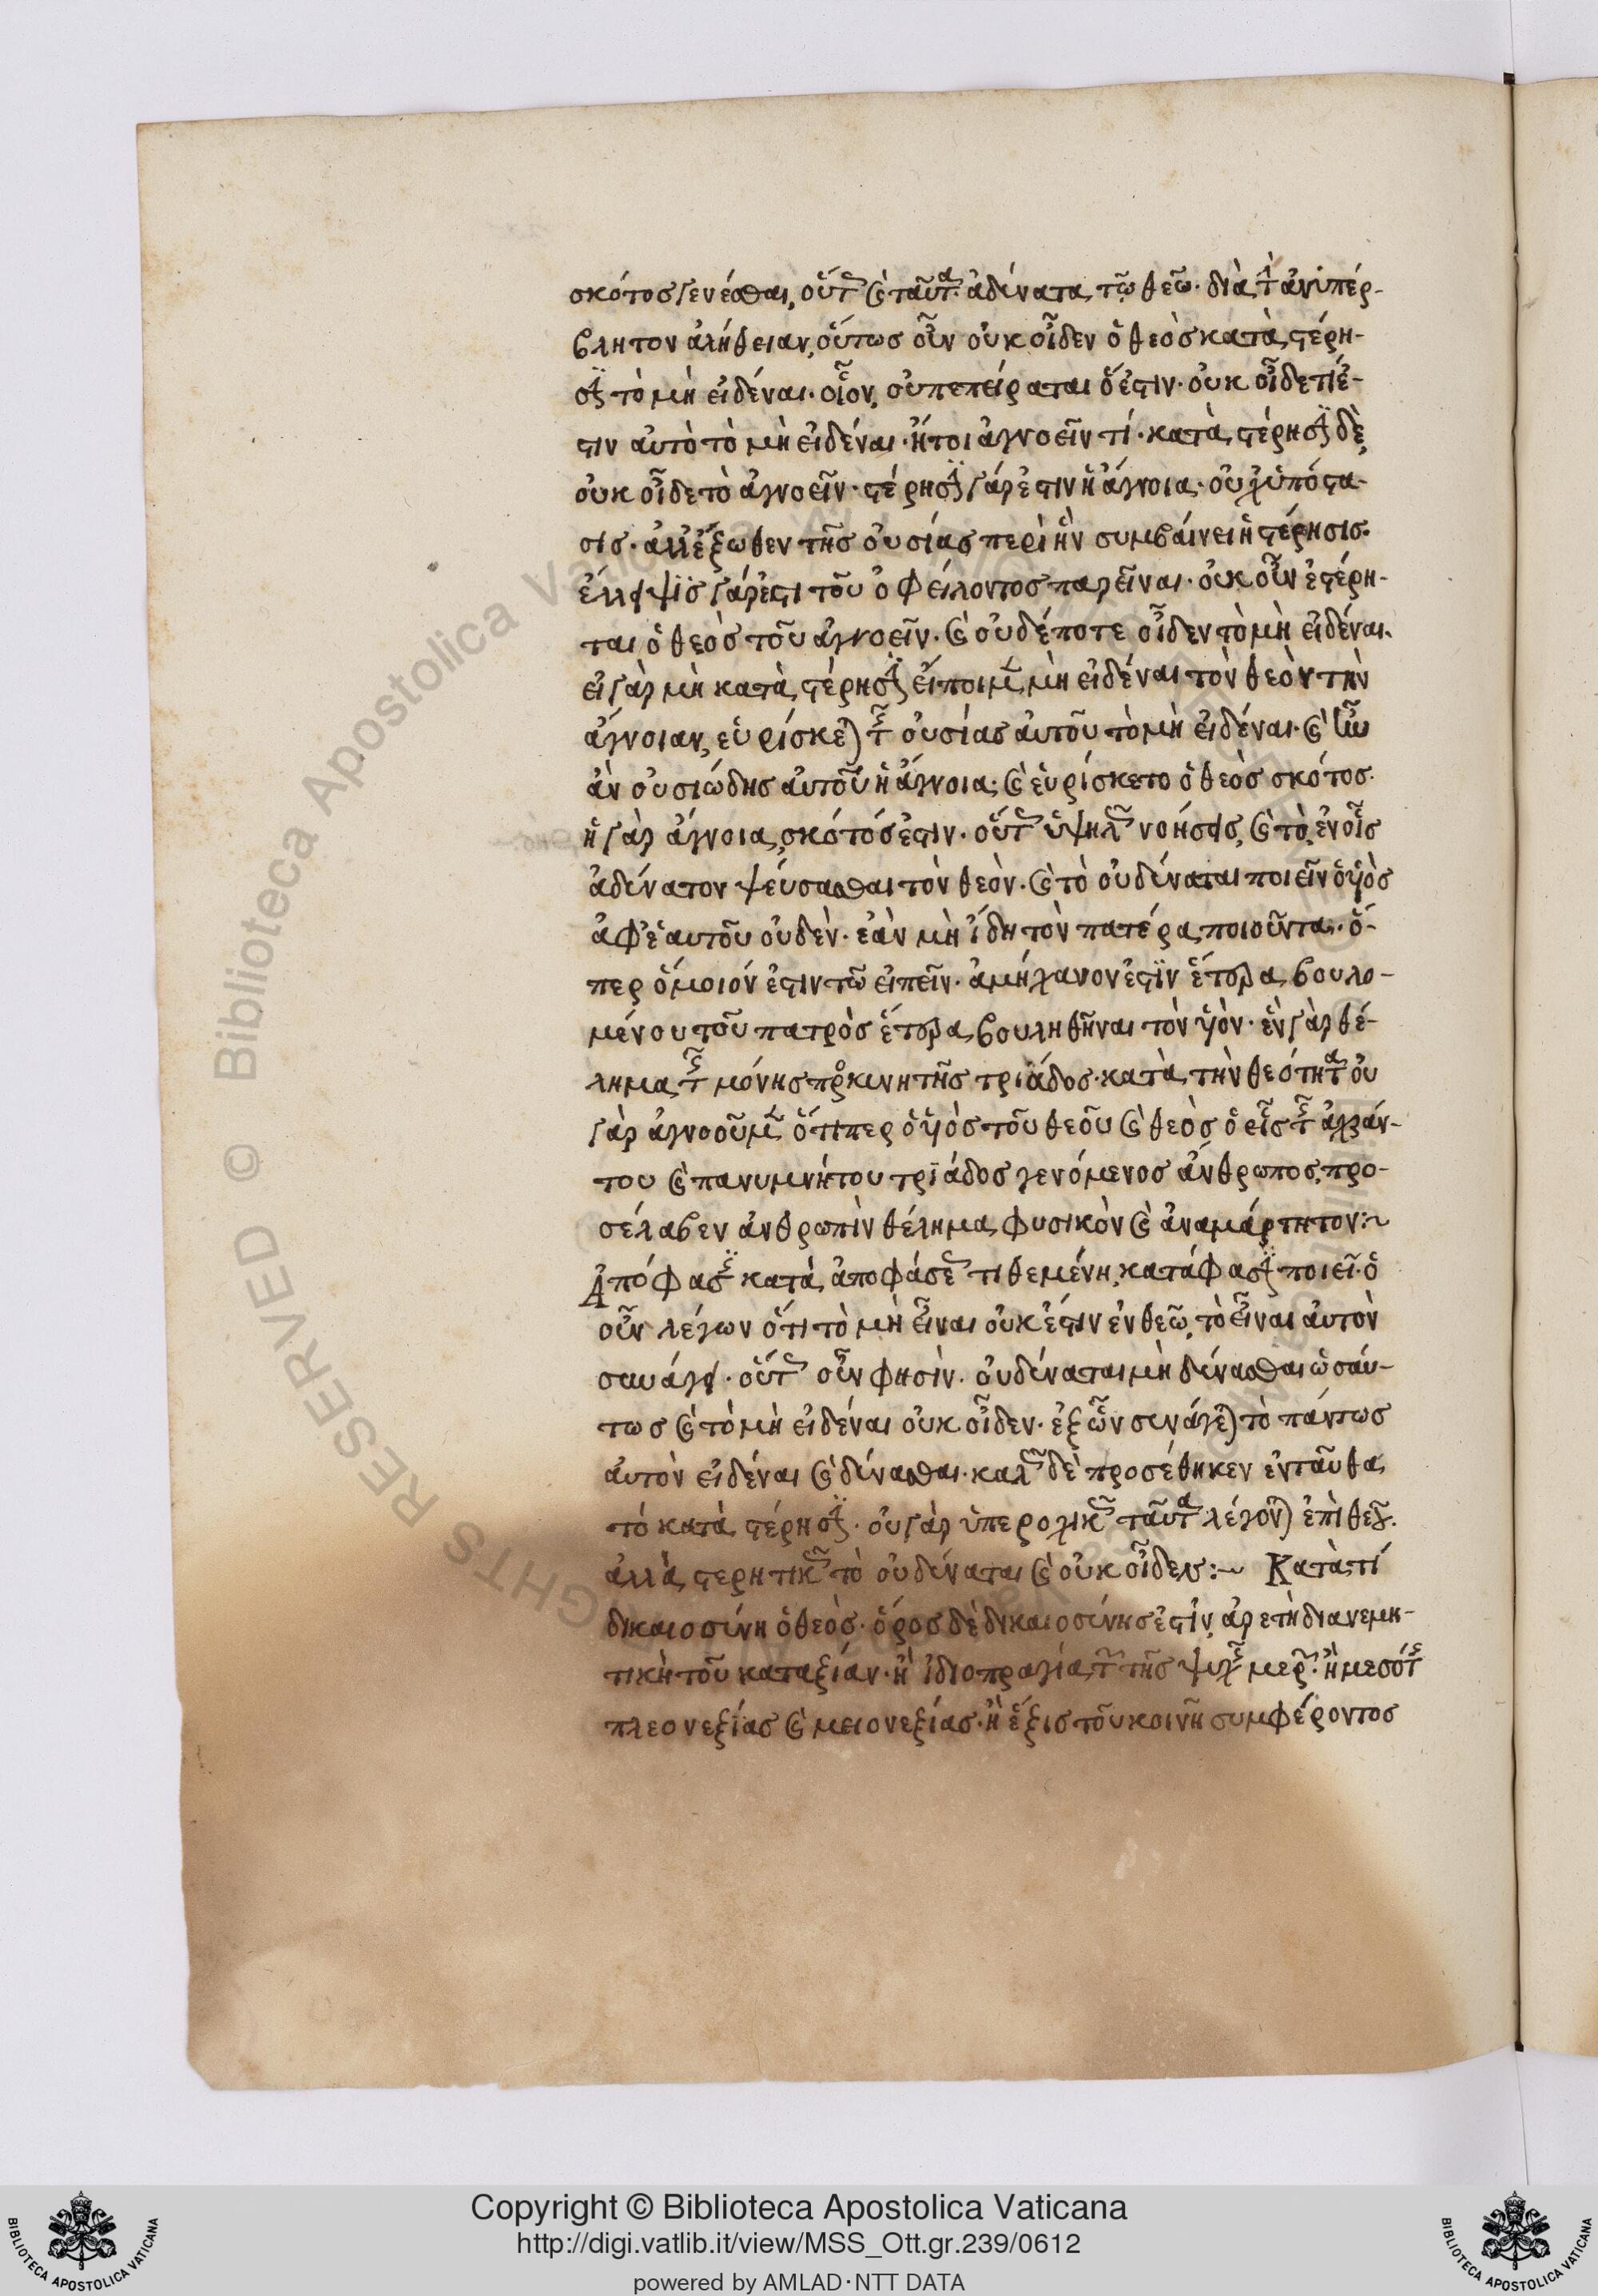 σκότος γενέσθαι, οὕτ καὶ ταῦτα ἀδύνατα τῷ θεῷ· διὰ τ ἀνυπέρ-
βλητον ἀλήθειαν, οὕτως οὖν οὐκ οἶδεν ὁ θεὸς κατὰ στέρη-
σιν τὸ μὴ εἰδέναι· οἷον, οὐ πεπείραται ὅ ἐστιν· οὐκ οἶδε τί ἐ-
στιν αὐτὸ τὸ μὴ εἰδέναι· ἤτοι ἀγνοεῖν τί· κατὰ στέρησιν δὲ
οὐκ οἶδε τὸ ἀγνοεῖν· στέρησις γάρ ἐστιν ἡ ἄγνοια· οὐχ ὑπόστα-
σις· ἀλλ ἔξωθεν τῆς οὐσίας περὶ ἣν συμβαίνει ἡ στέρησις·
ἔλλειψις γάρ ἐστι τοῦ ὀφείλοντος παρεῖναι· οὐκ οὖν ἐστέρη-
ται ὁ θεὸς τοῦ ἀγνοεῖν· καὶ οὐδέποτε οἶδεν τὸ μὴ εἰδέναι·
εἰ γὰρ μὴ κατὰ στέρησιν εἴποιμεν μὴ εἰδέναι τὸν θεὸν τὴν
ἄγνοιαν, εὑρίσκεται τῆς οὐσίας αὐτοῦ τὸ μὴ εἰδέναι· καὶ ἦν
ἂν οὐσιώδης αὐτοῦ ἡ ἄγνοια· καὶ εὑρίσκετο ὁ θεὸς σκότος·
ἡ γὰρ ἄγνοια, σκότός ἐστιν· οὕτ ὑψηλῶς νοήσεις, καὶ τὸ, ἐν οἷς
ἀδύνατον ψεύσασθαι τὸν θεὸν· καὶ τὸ οὐ δύναται ποιεῖν ὁ υἱὸς
ἀφ ἑαυτοῦ οὐδὲν· ἐὰν μὴ ἴδη τὸν πατέρα ποιοῦντα· ὅ-
περ ὅμοιόν ἐστιν τῶ εἰπεῖν· ἀμήχανον ἐστὶν ἕτερα βουλο-
μένου τοῦ πατρὸς ἕτερα βουληθῆναι τὸν υἱὸν· ἓν γὰρ θέ-
λημα τῆς μόνης προσκυνητῆς τριάδος· κατὰ τὴν θεότητα οὐ
γὰρ ἀγνοοῦμεν ὅτιπερ ὁ υἱὸς τοῦ θεοῦ καὶ θεὸς ὁ εἷς τῆς ἀχράν-
του καὶ πανυμνήτου τριάδος γενόμενος ἄνθρωπος, προ-
σέλαβεν ἀνθρωπὶν θέλημα φυσικὸν καὶ ἀναμάρτητον:~
Ἀπόφασις κατὰ ἀποφάσεως τιθεμένη, κατάφασιν ποιεῖ· ὁ
οὖν λέγων ὅτι τὸ μὴ εἶναι οὐκ ἔστιν ἐν θεῶ, τὸ εἶναι αὐτὸν
συνάγει· οὕτ οὖν φησὶν· οὐ δύναται μὴ δύνασθαι ὡσαύ-
τως καὶ τὸ μὴ εἰδέναι οὐκ οἶδεν· ἐξ ὧν συνάγεται τὸ πάντως
αὐτὸν εἰδέναι καὶ δύνασθαι· καλῶς δὲ προσέθηκεν ἐνταῦθα
τό κατὰ στέρησιν· οὐ γὰρ ὑπεροχικῶς ταῦτα λέγονται ἐπὶ θεοῦ·
ἀλλὰ στερητικῶς τὸ οὐ δύναται καὶ οὐκ οἶδεν:~ Κατὰ τί
δικαιοσύνη ὁ θεὸς· ὅρος δὲ δικαιοσύνης ἐστὶν, ἀρετὴ διανεμη-
τικὴ τοῦ καταξίαν· ἢ ἰδιοπραγία τῶν τῆς ψυχῆς μερῶν· ἢ μεσότης
πλεονεξίας καὶ μειονεξίας· ἢ ἕξις τοῦ κοινῆ συμφέροντος
Copyright © Biblioteca Apostolica Vaticana
http://digi.vatlib.it/view/MSS_Ott.gr.239/0612
powered by AMLAD·NTT DATA